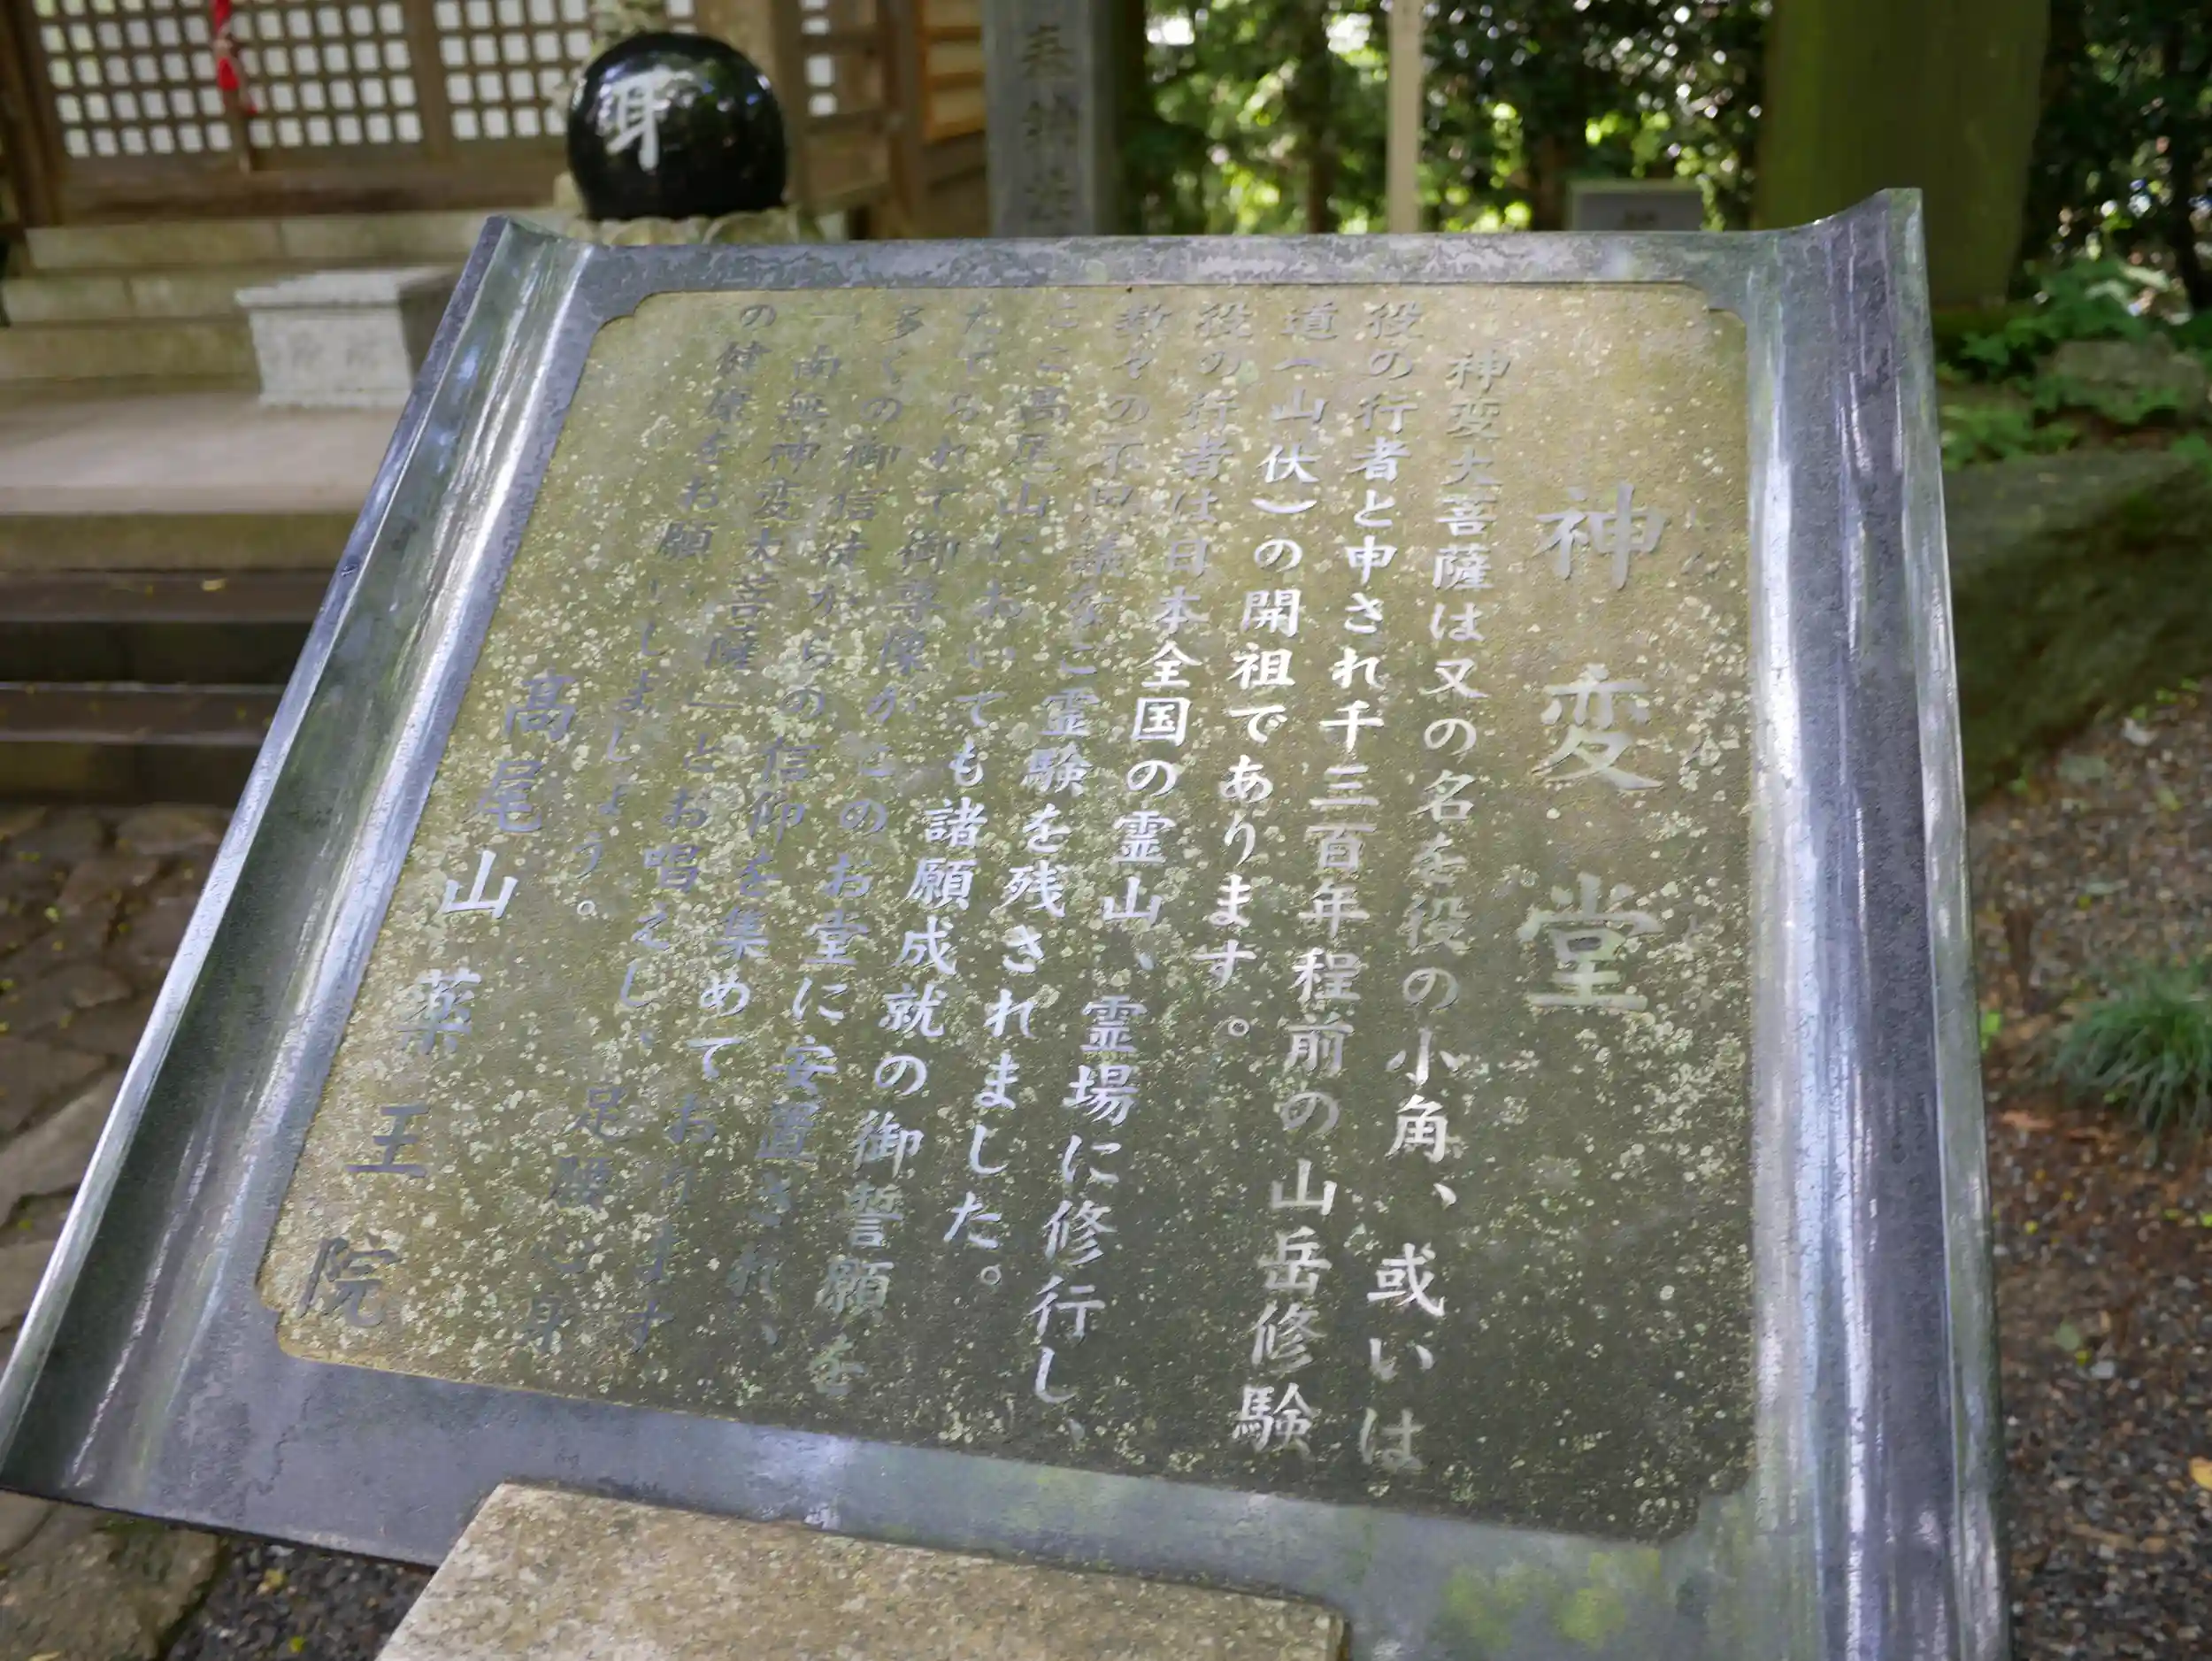 耳
奉納
神変堂
神変大菩薩は又の名を役の小角、或いは
役の行者と申され千三百年程前の山岳修験
道（山伏）の開祖であります。
役の行者は日本全国の霊山、霊場に修行し、
数々の不思議なご霊験を残されました。
ここ高尾山においても諸願成就の御誓願を
たてられて御尊像がこのお堂に安置され、
多くの御信徒からの信仰を集めております
「南無神変大菩薩」とお唱えし、足腰ご身
の健康をお願いしましょう。
高尾山薬王院